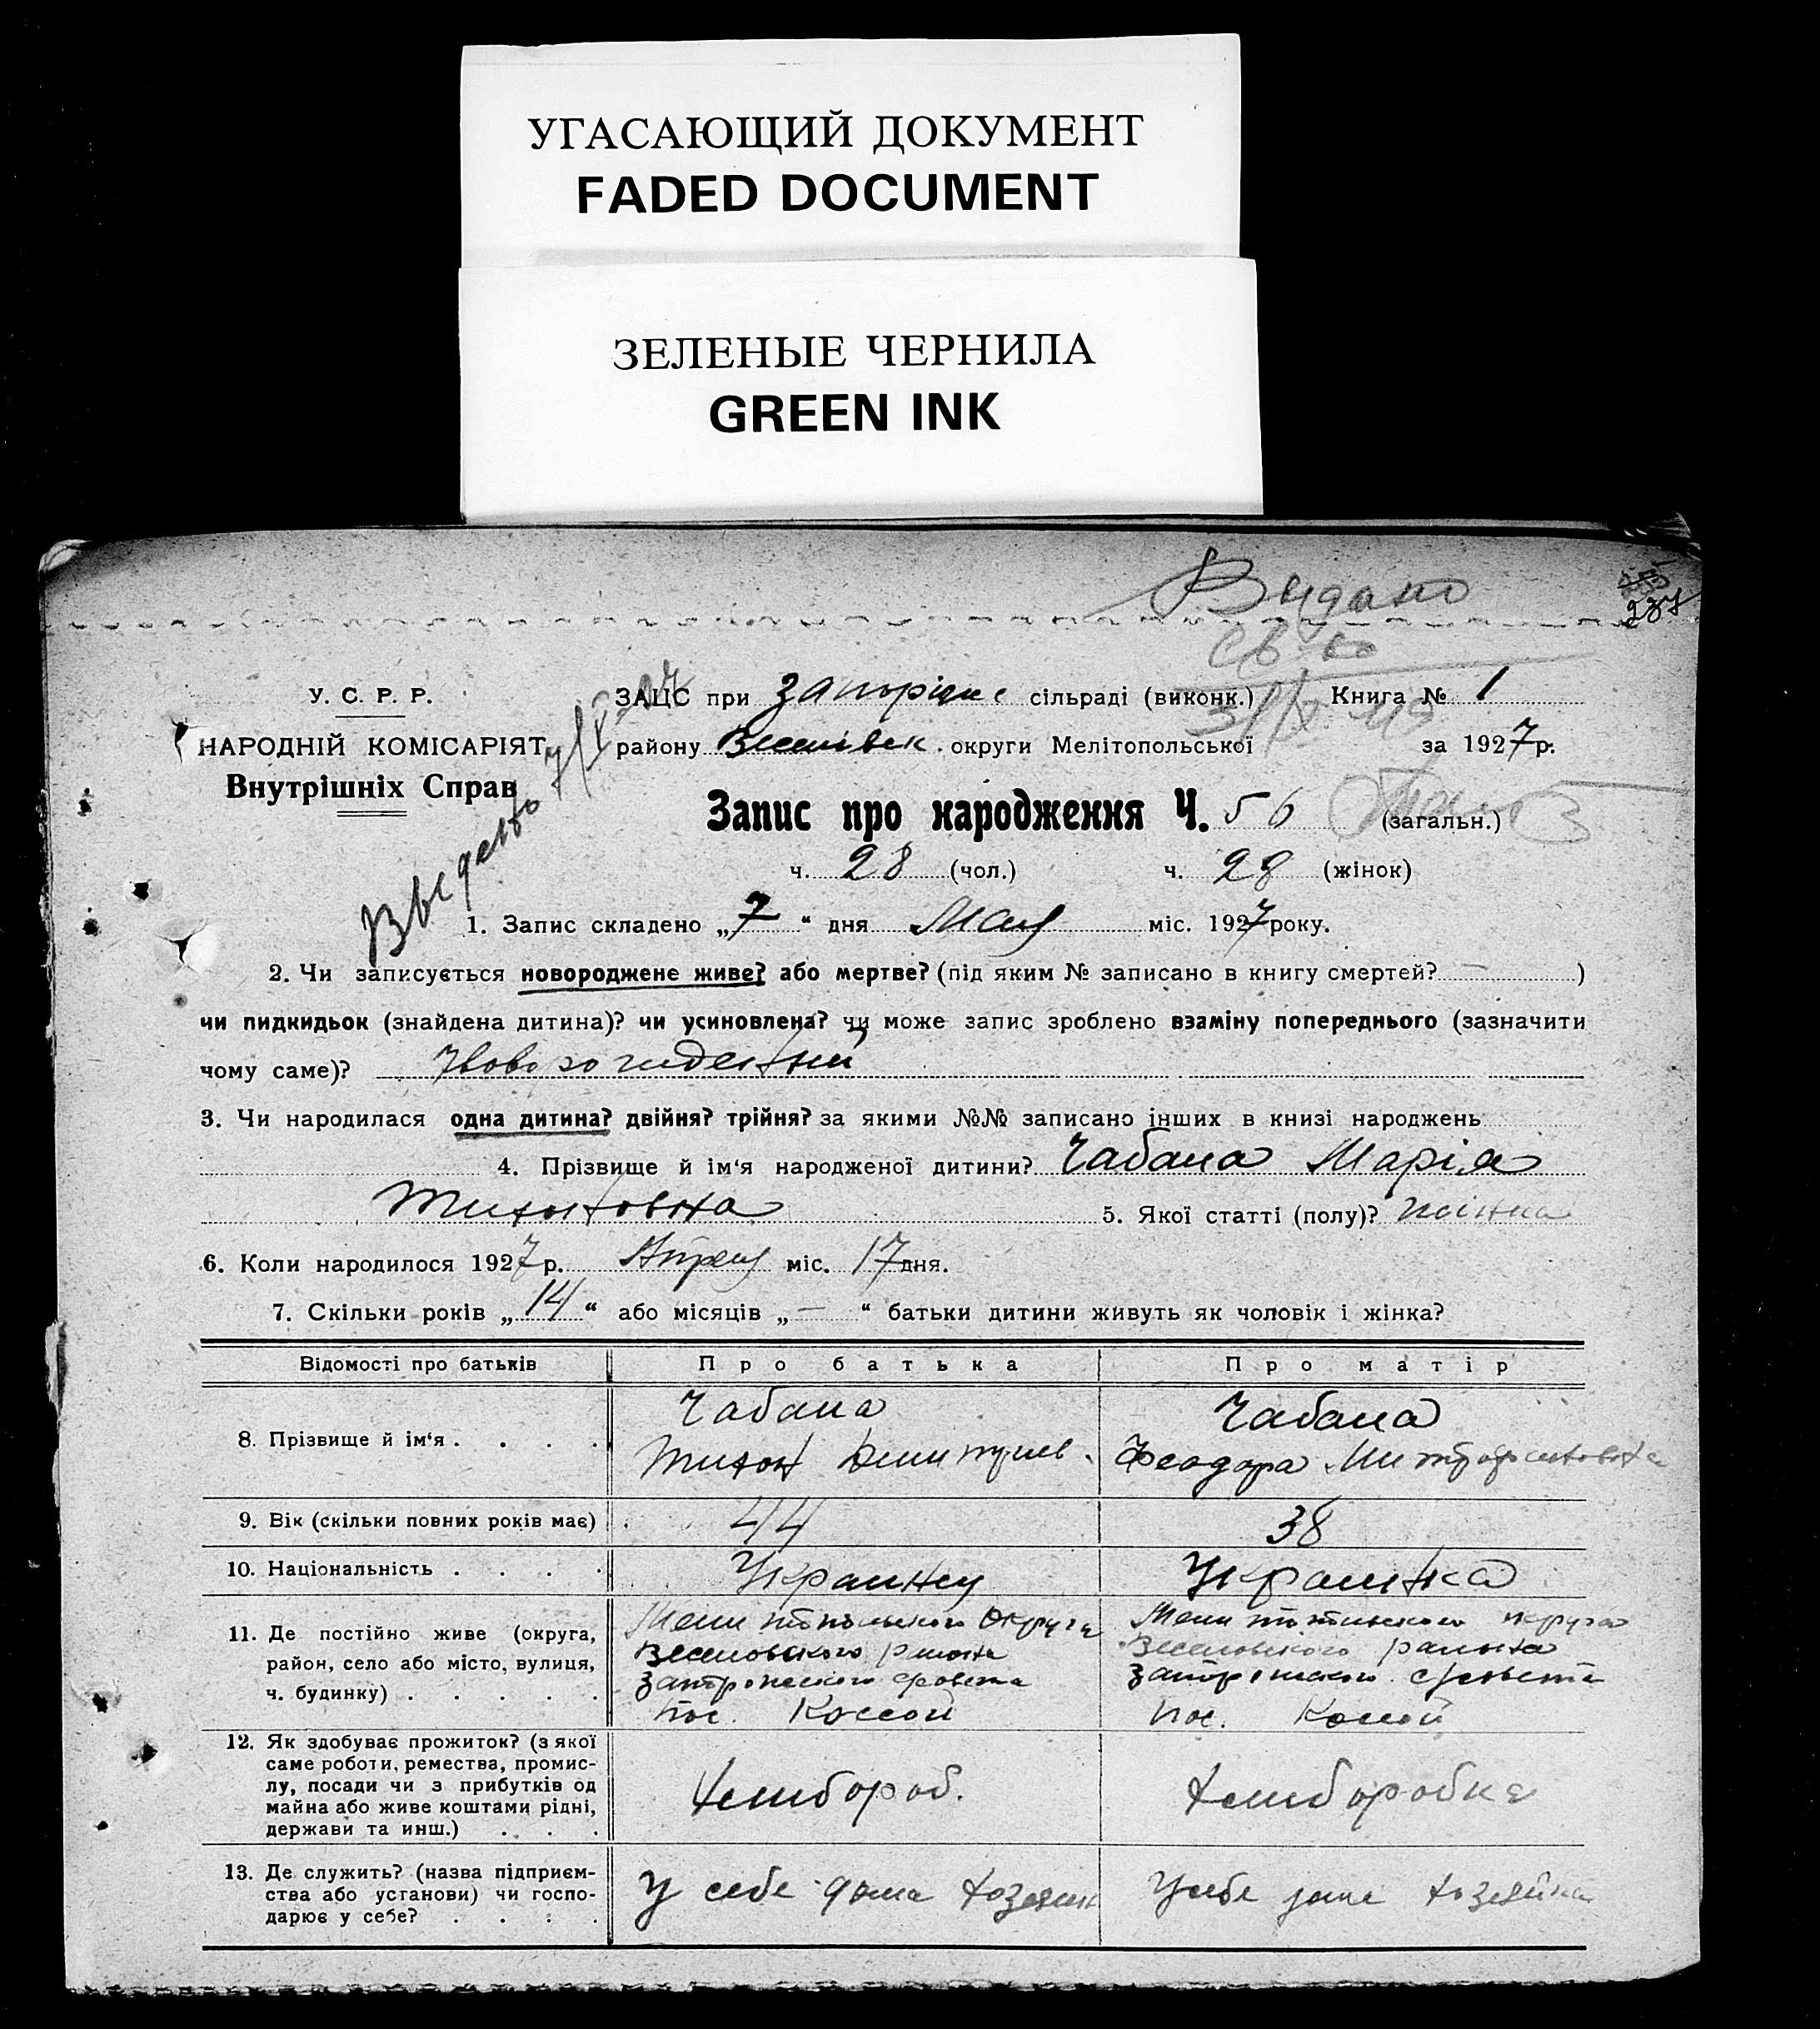 УГАСАЮЩИЙ ДОКУМЕНТ
FADED DOCUMENT
ЗЕЛЕНЫЕ ЧЕРНИЛА
GREEN INK
Видано
св-во
287
У. С. Р. Р.
ЗАЦС при сільраді (виконк.) Книга № 1
НАРОДНІЙ КОМІСАРІЯТ
району округи Мелітопольської за 1927р.
Внутрішніх Справ
Запис про народження Ч. 56 (загальн.)
ч. 28 (чол.) ч. 28 (жінок)
1. Запис складено „7“ дня Мая міс. 1927року.
2. Чи записується новороджене живе? або мертве? (під яким № записано в книгу смертей? — )
чи пидкидьок (знайдена дитина)? чи усиновлена? чи може запис зроблено взаміну попереднього (зазначити
чому саме)?
3. Чи народилася одна дитина? двійня? трійня? за якими №№ записано інших в книзі народжень
4. Прізвище й ім‘я народженої дитини? Чабана Марія
Тихоновна 5. Якої статті (полу)? жінка
6. Коли народилося 1927р. Апреля міс. 17дня.
7. Скільки років „14“ або місяців „—“ батьки дитини живуть як чоловік і жінка?
Відомості про батьків Про батька Про матір
8. Прізвище й ім‘я . . . . Чабана Чабана
Тихон Дмитриев. Феодора Митрофановна
9. Вік (скільки повних років має) 44 38
10. Національність . . . . Украинец Украинка
11. Де постійно живе (округа, Мелитопольского Округа Мелитопольского округа
район, село або місто, вулиця, Веселовского района Веселовского района
ч. будинку) . . . . . сровета сровета
пос. Коссой пос. Коссой
12. Як здобуває прожиток? (з якої
саме роботи, ремества, промис-
лу, посади чи з прибутків од
майна або живе коштами рідні,
держави та инш.) . . .
Хлибороб. Хлиборобка
13. Де служить? (назва підприєм-
ства або установи) чи госпо-
дарює у себе? . . . .
У себе дома хозяин У себе дома хозяйка